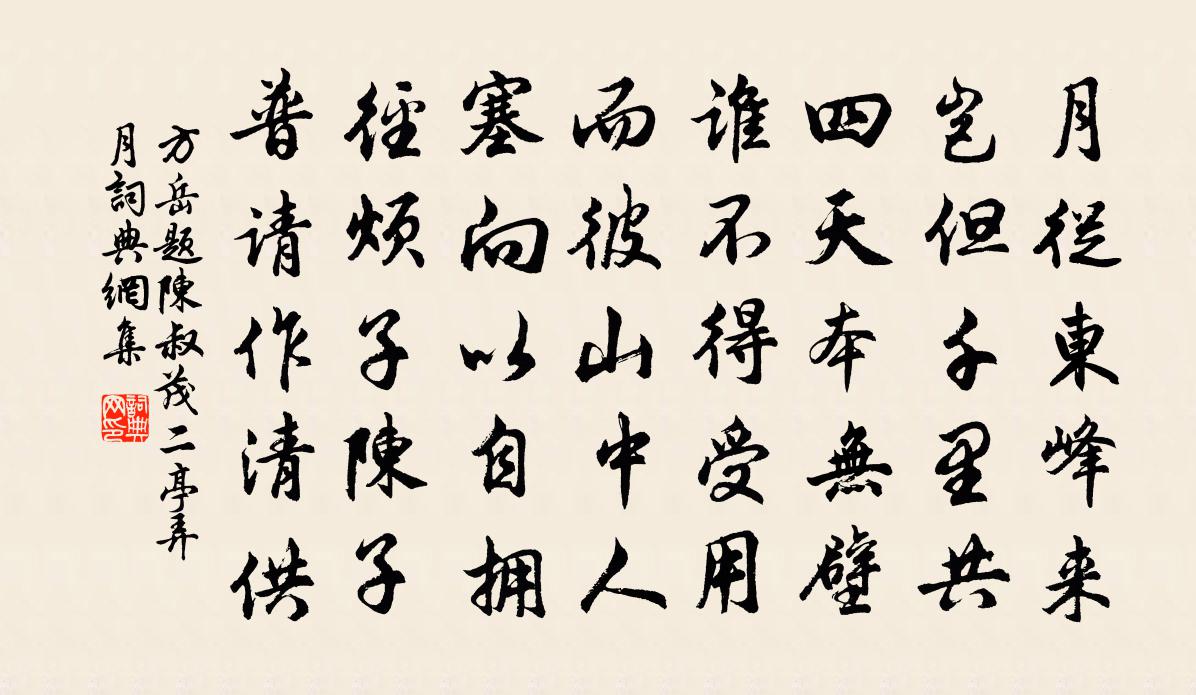 月從東峰来
岂但千里共
四天本無壁
誰不得受用
而彼山中人
塞向以自拥
徑烦子陳子
普请作清供
方岳题陳叔茂二亭弄
月詞典網集
詞典
网印